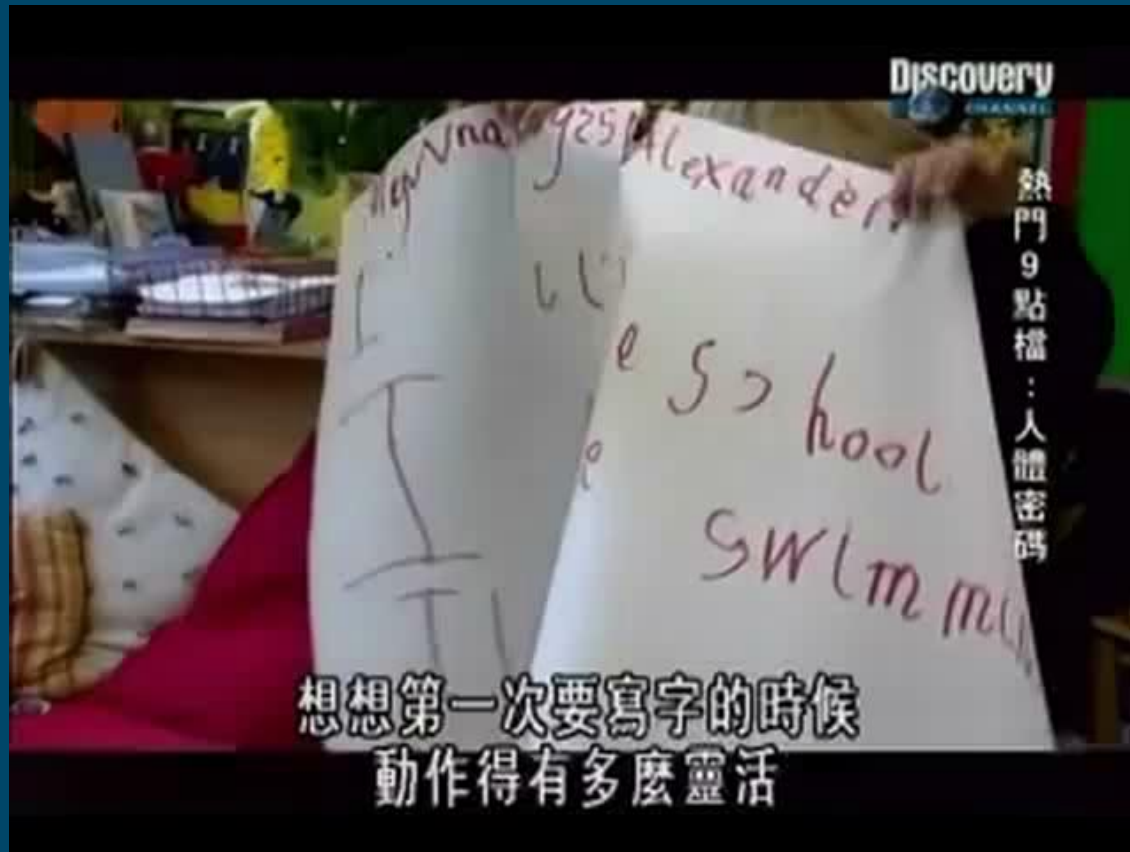 Discovery
CHANNEL
熱門9點檔：人體密碼
Alexander
I
e school
I
swimmi
想想第一次要寫字的時候
動作得有多麼靈活